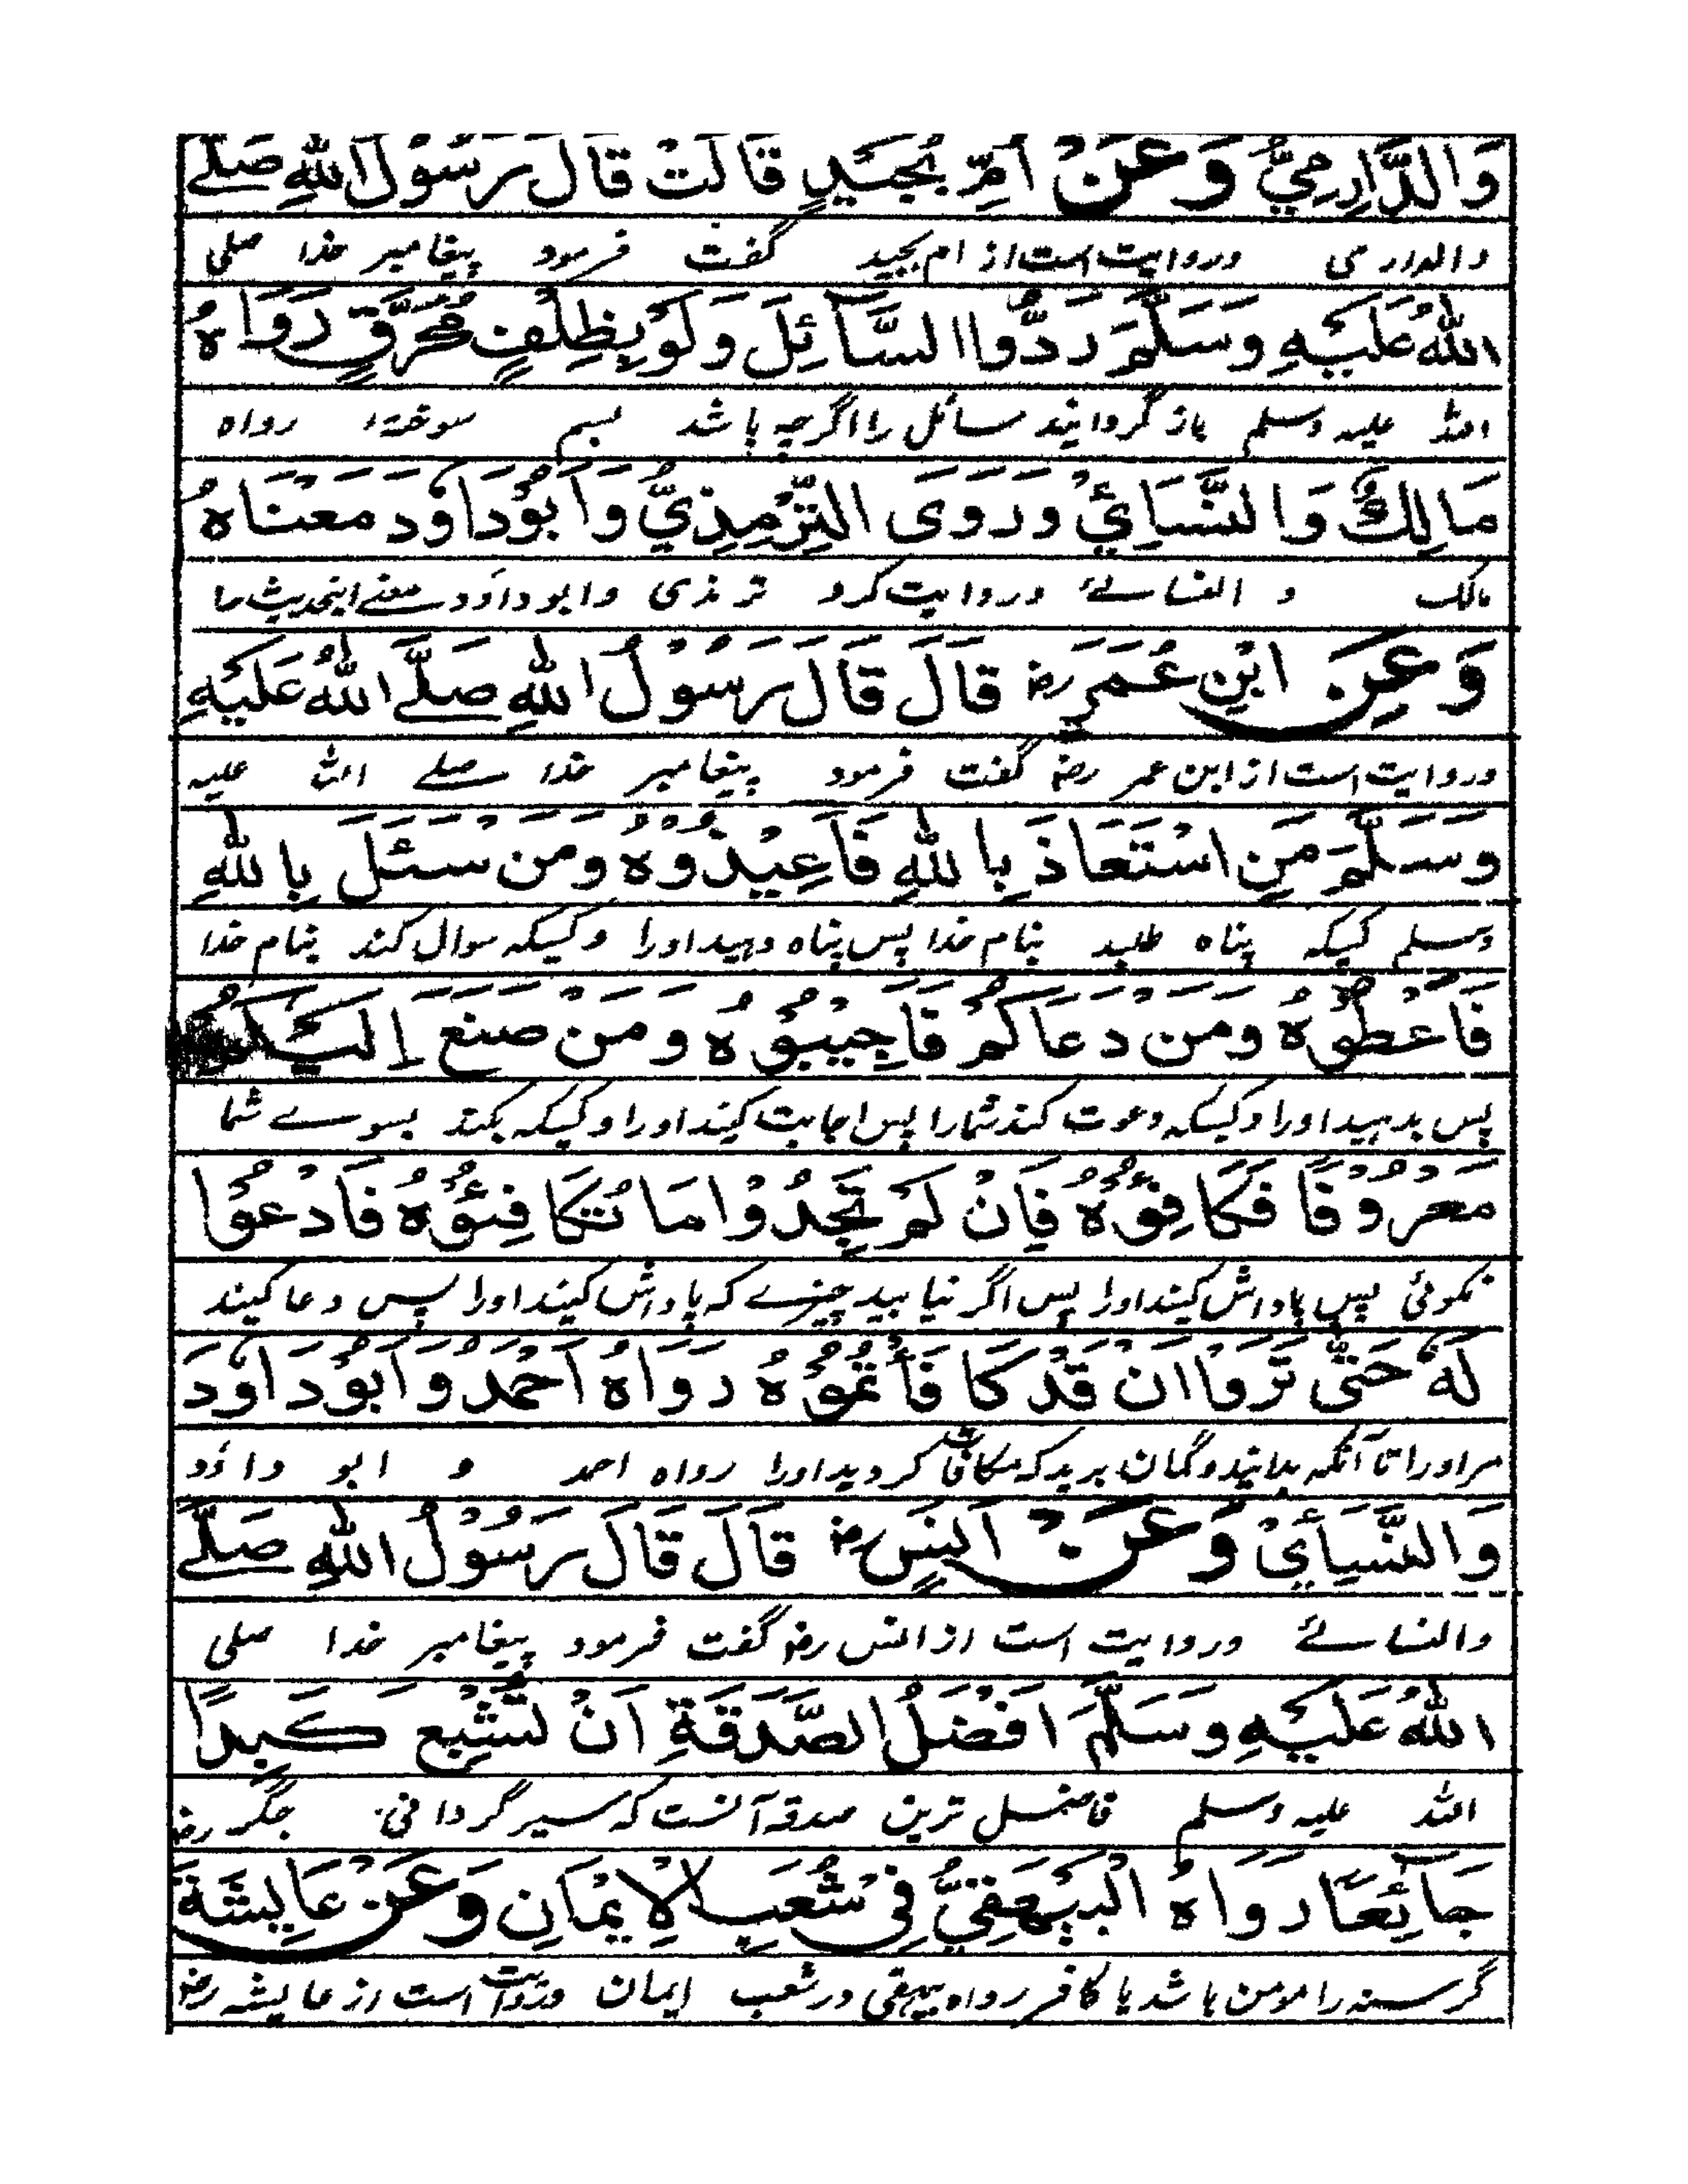 وَالدَّارِمِيُّ وَعَنْ اُمِّ بُجَيْدٍ قَالَتْ قَالَ رَسُوْلُ اللّٰهِ صَلَّے
والدارمی وروایت است از ام بجید گفت فرمود پیغامبر خدا صلی
اللّٰهُ عَلَيْهِ وَسَلَّمَ رُدُّوا السَّآئِلَ وَلَوْ بِظِلْفٍ مُحَرَّقٍ رَوَاهُ
الله علیه وسلم باز گردانید سائل را اگرچه باشد بسم سوخته رواه
مَالِكٌ وَالنَّسَائِيُّ وَرَوَى التِّرْمِذِيُّ وَاَبُوْدَاوٗدَ مَعْنَاهُ
مالک و النسائے وروایت کرد ترمذی وابوداؤد معنے اینحدیث را
وَعَنِ ابْنِ عُمَرَ رض قَالَ قَالَ رَسُوْلُ اللّٰهِ صَلَّے اللّٰهُ عَلَيْهِ
وروایت است از ابن عمر رض گفت فرمود پیغامبر خدا صلے الله علیه
وَسَلَّمَ مَنِ اسْتَعَاذَ بِاللّٰهِ فَاَعِيْذُوْهُ وَمَنْ سَئَلَ بِاللّٰهِ
وسلم کسیکه پناه طلبد بنام خدا پس پناه دهید اورا وکسیکه سوال کند بنام خدا
فَاَعْطُوْهُ وَمَنْ دَعَاكُمْ فَاَجِيْبُوْهُ وَمَنْ صَنَعَ اِلَيْكُمْ
پس بدهید اورا وکسیکه دعوت کند شمارا پس اجابت کنید اورا وکسیکه بکند بسوے شما
مَعْرُوْفًا فَكَافِئُوْهُ فَاِنْ لَمْ تَجِدُوْا مَا تُكَافِئُوْهُ فَادْعُوْا
نکوئی پس پاداش کنید اورا پس اگر نیابید چیزے که پاداش کنید اورا پس دعا کنید
لَهٗ حَتّٰى تَرَوْا اَنْ قَدْ كَافَأْتُمُوْهُ رَوَاهُ اَحْمَدُ وَاَبُوْدَاوٗدَ
مر اورا تا آنکه بدانید وگمان برید که مکافات کردید اورا رواه احمد و ابو داؤد
وَالنَّسَائِيْ وَعَنْ اَنَسٍ رض قَالَ قَالَ رَسُوْلُ اللّٰهِ صَلَّے
والنسائے وروایت است از انس رض گفت فرمود پیغامبر خدا صلی
اللّٰهُ عَلَيْهِ وَسَلَّمَ اَفْضَلُ الصَّدَقَةِ اَنْ تُشْبِعَ كَبِدًا
الله علیه وسلم فاضل ترین صدقه آنست که سیر گردانی جگر
جَآئِعًا رَوَاهُ الْبَيْهَقِيُّ فِيْ شُعَبِ الْاِيْمَانِ وَعَنْ عَايِشَةَ
گرسنه را مومن باشد یا کافر رواه بیهقی در شعب ایمان وروایت است از عایشه رض